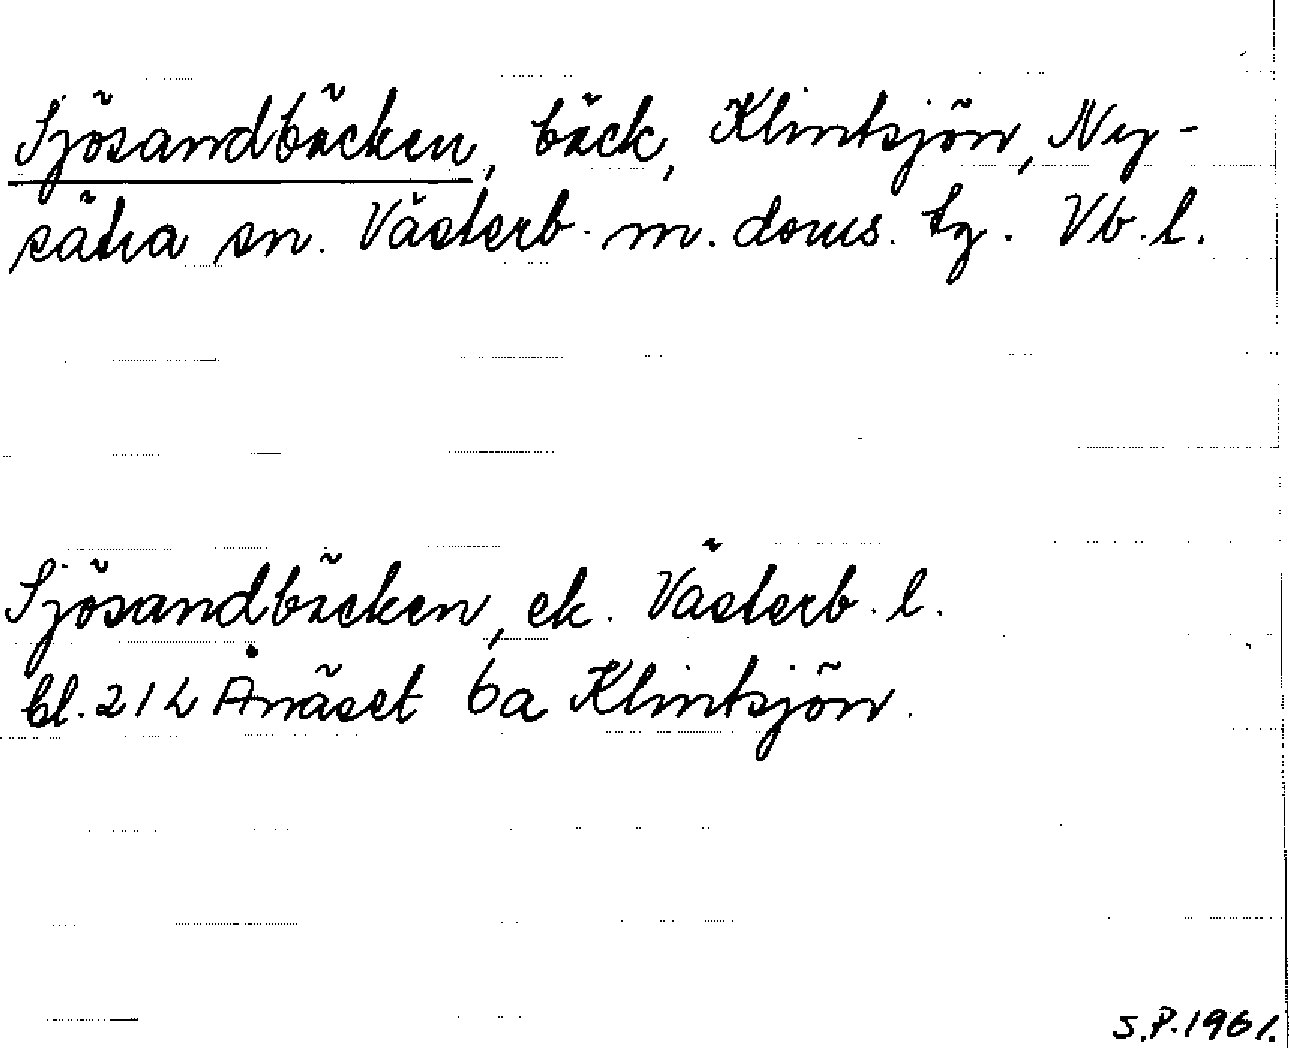 Sjösandbäcken, bäck, Klintsjön, Ny-
sätra sn. Västerb. m. doms. tg. Vb. l.
Sjösandbäcken, ek. Västerb. l.
bl. 21L Ånäset 6a Klintsjön.
S.P. 1961.